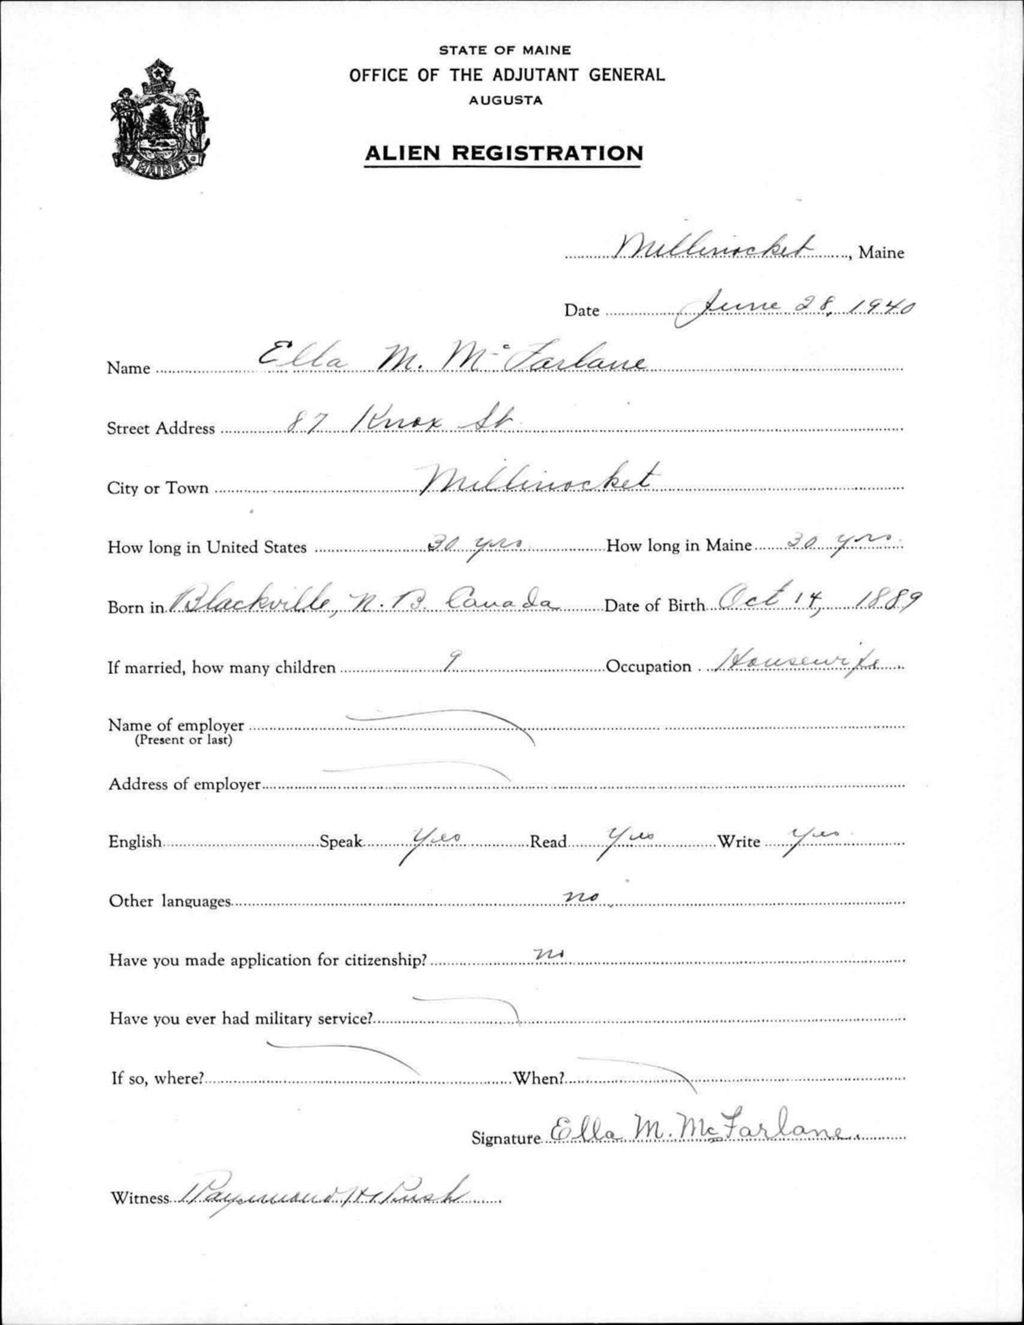 STATE OF MAINE
OFFICE OF THE ADJUTANT GENERAL
AUGUSTA
ALIEN REGISTRATION
MAINE
Millinocket, Maine
Date June 28, 1940
Name Ella M. McFarlane
Street Address 87 Knox St
City or Town Millinocket
How long in United States 30 yrs How long in Maine 30 yrs
Born in Blackville, N. B. Canada Date of Birth Oct 14, 1889
If married, how many children 9 Occupation Housewife
Name of employer
(Present or last)
Address of employer
English Speak Yes Read Yes Write Yes
Other languages no
Have you made application for citizenship? no
Have you ever had military service?
If so, where? When?
Signature Ella M. McFarlane
Witness Raymond H Rush